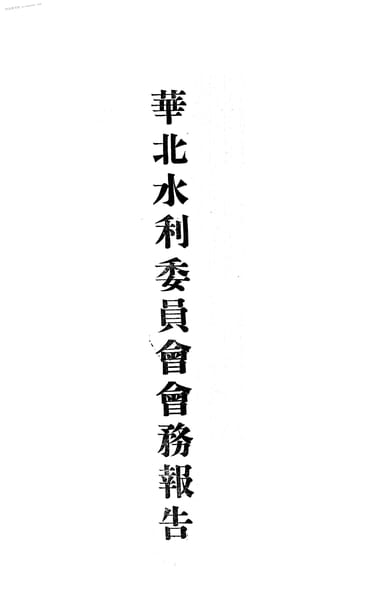 華北水利委員會會務報告